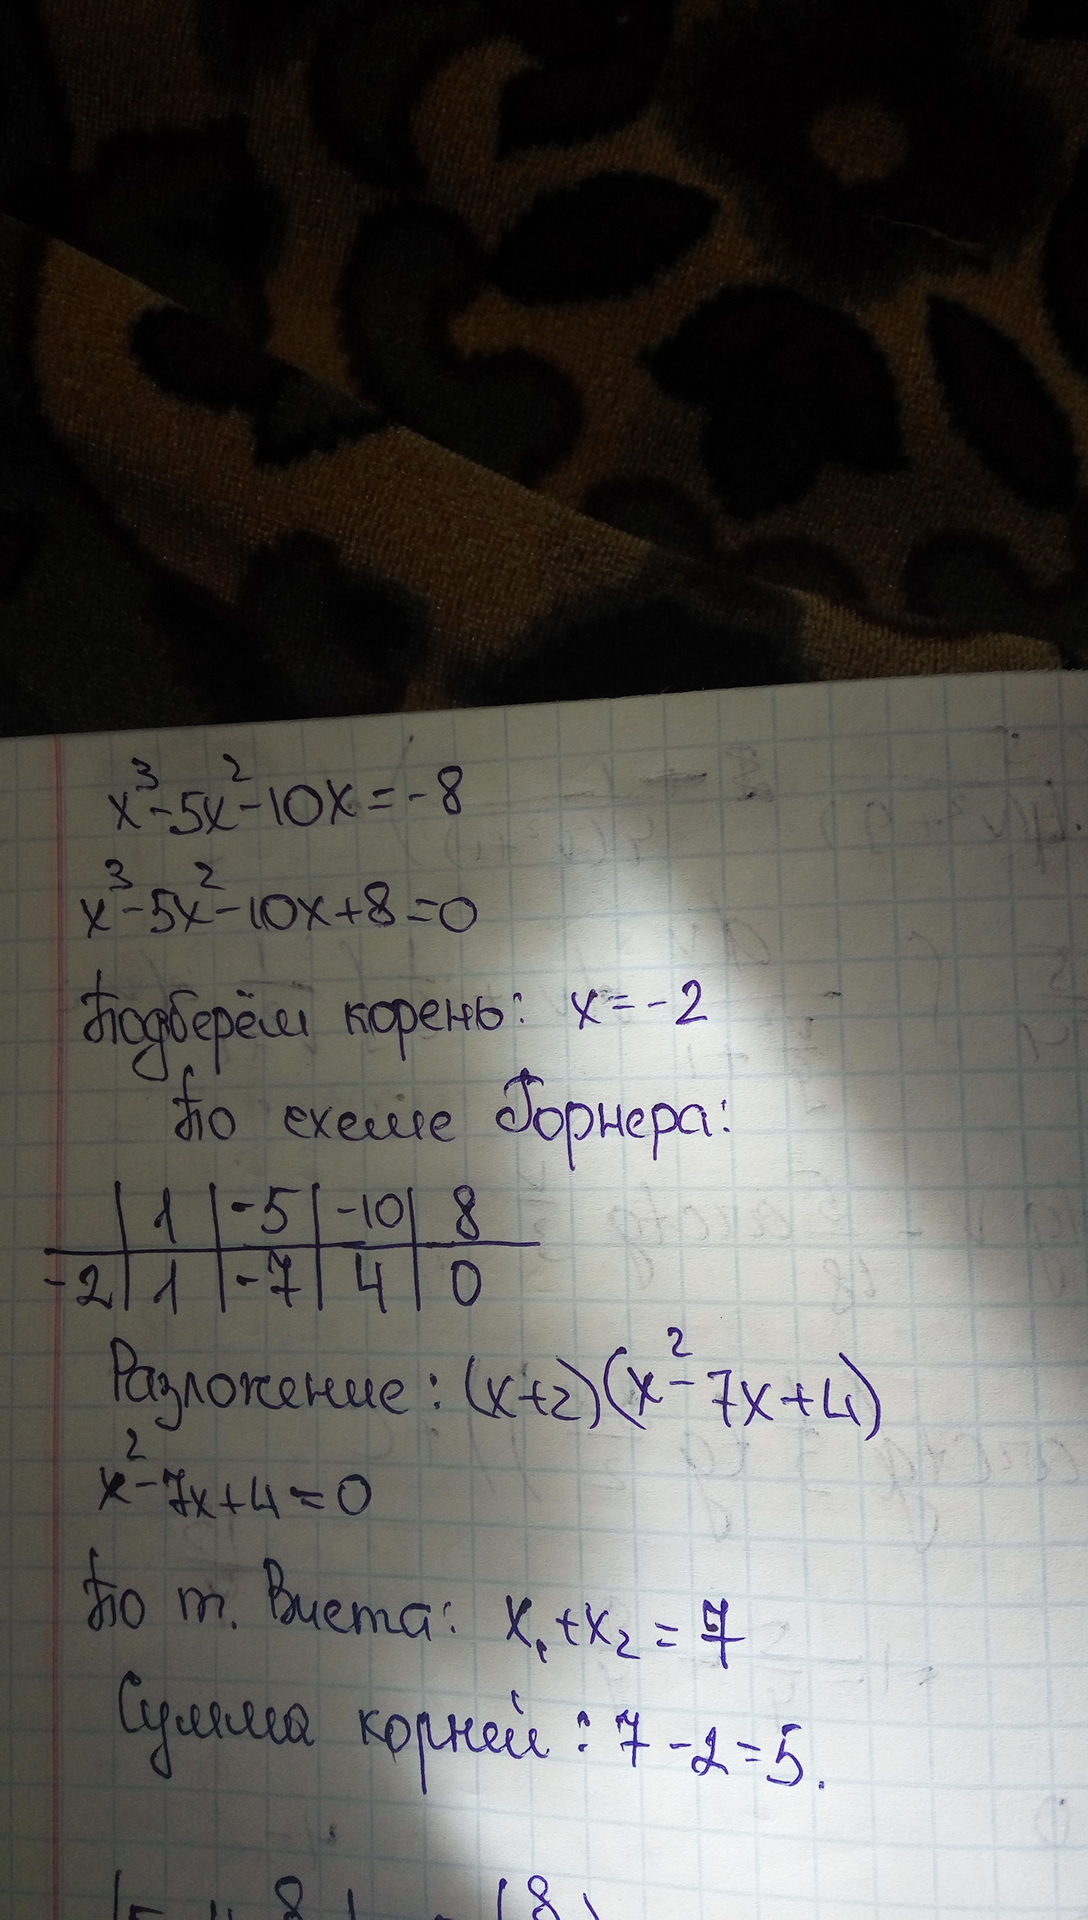 x³-5x²-10x=-8
x³-5x²-10x+8=0
Подберём корень: x=-2
По схеме Горнера:
1 -5 -10 8
-2 1 -7 4 0
Разложение: (x+2)(x²-7x+4)
x²-7x+4=0
По т. Виета: x₁+x₂=7
Сумма корней: 7-2=5.